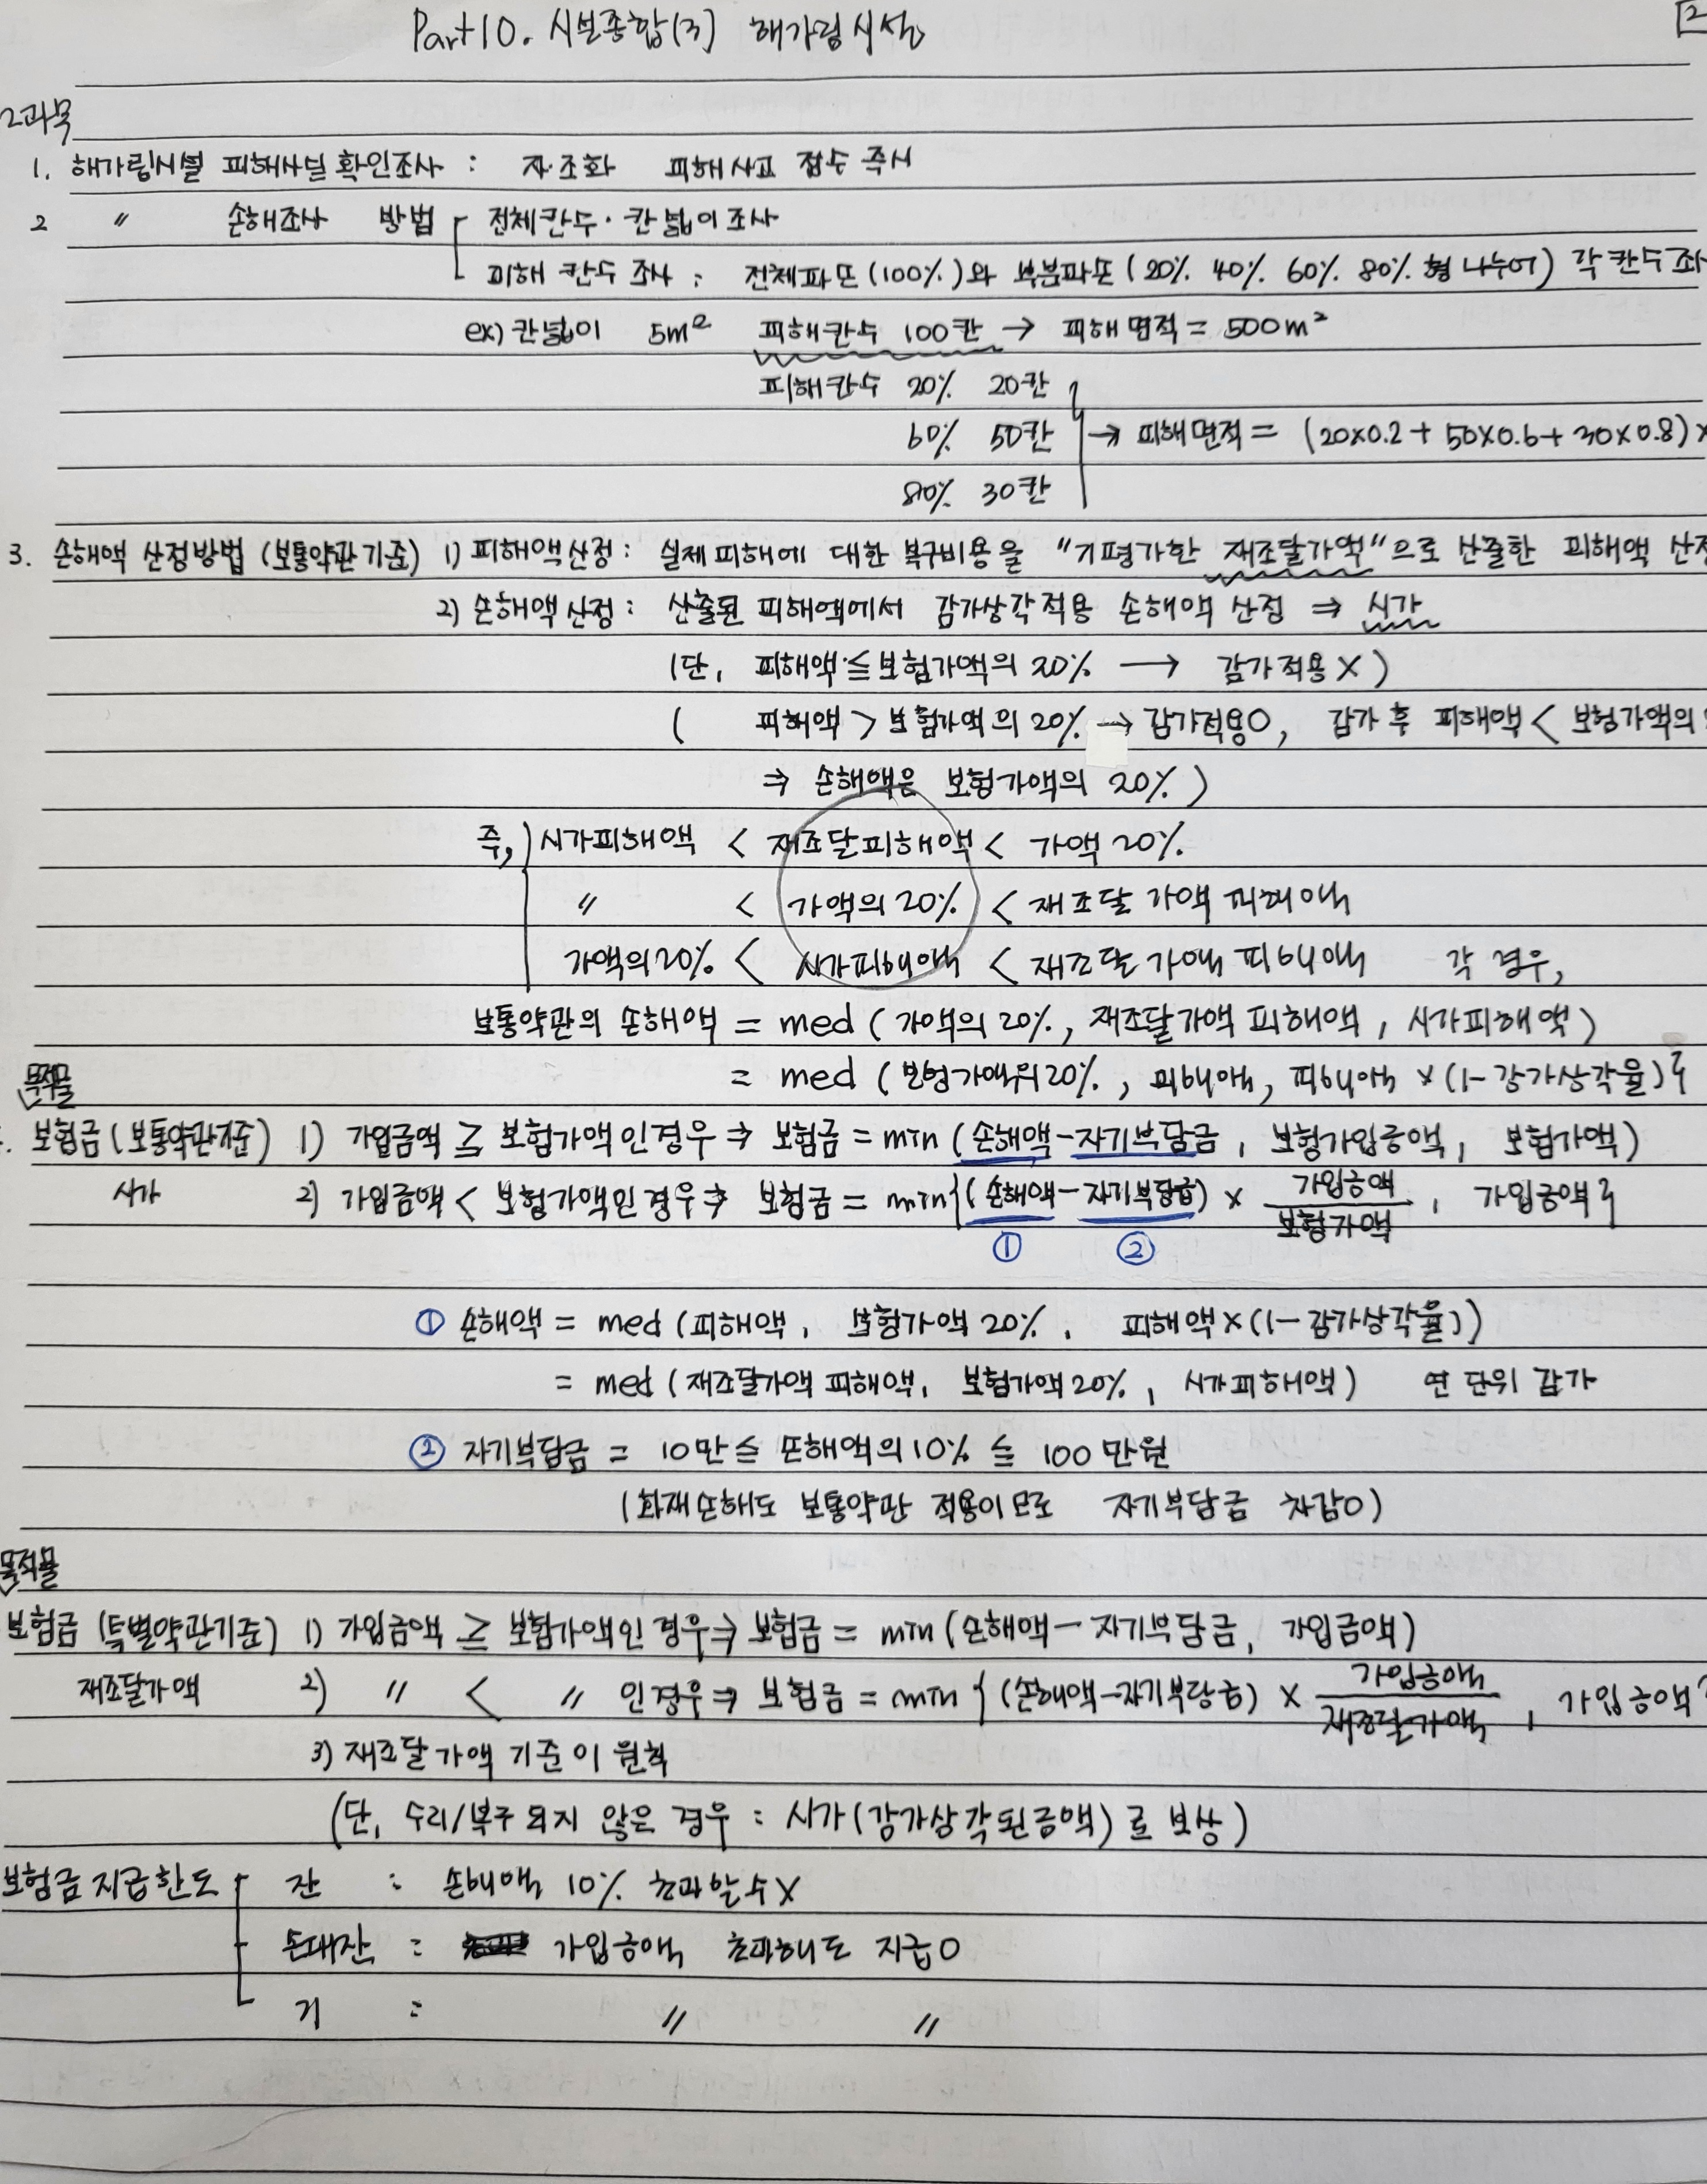 Part 10. 시설종합(3) 해가림시설
2
2과목
1. 해가림시설 피해사실확인조사 : 자·조·화 피해사고 접수 즉시
2 〃 손해조사 방법 전체칸수·칸넓이조사
피해 칸수 조사 : 전체파손(100%)와 부분파손(20% 40% 60% 80%형 나누어) 각 칸수
ex) 칸넓이 5m² 피해칸수 100칸 → 피해면적 = 500m²
피해칸수 20% 20칸
60% 50칸 → 피해면적 = (20×0.2 + 50×0.6 + 30×0.8) ×
80% 30칸
3. 손해액 산정방법 (보통약관기준) 1) 피해액산정 : 실제피해에 대한 복구비용을 "기평가한 재조달가액"으로 산출한 피해액
2) 손해액산정 : 산출된 피해액에서 감가상각적용 손해액 산정 ⇒ 시가
(단, 피해액 ≤ 보험가액의 20% → 감가적용X)
( 피해액 > 보험가액의 20% → 감가적용O, 감가 후 피해액 < 보험가액의
⇒ 손해액은 보험가액의 20%)
즉, 시가피해액 < 재조달피해액 < 가액 20%
〃 < 가액의 20% < 재조달 가액 피해액
가액의 20% < 시가피해액 < 재조달 가액 피해액 각 경우,
보통약관의 손해액 = med (가액의 20%, 재조달가액 피해액, 시가피해액)
= med (보험가액의 20%, 피해액, 피해액 × (1-감가상각율)}
목적물
보험금 (보통약관기준) 1) 가입금액 ≥ 보험가액인경우 ⇒ 보험금 = min (손해액-자기부담금, 보험가입금액, 보험가액)
시가 2) 가입금액 < 보험가액인경우 ⇒ 보험금 = min{(손해액-자기부담금) × 가입금액/보험가액, 가입금액}
① ②
① 손해액 = med (피해액, 보험가액 20%, 피해액×(1-감가상각율))
= med (재조달가액 피해액, 보험가액 20%, 시가피해액) 연 단위 감가
② 자기부담금 = 10만 ≤ 손해액의 10% ≤ 100만원
(화재손해도 보통약관 적용이므로 자기부담금 차감O)
목적물
보험금 (특별약관기준) 1) 가입금액 ≥ 보험가액인 경우 ⇒ 보험금 = min (손해액-자기부담금, 가입금액)
재조달가액 2) 〃 < 〃 인경우 ⇒ 보험금 = min { (손해액-자기부담금) × 가입금액/재조달가액, 가입금액}
3) 재조달가액 기준이 원칙
(단, 수리/복구 되지 않은 경우 : 시가(감가상각된금액)로 보상)
보험금 지급한도 잔 : 손해액 10% 초과할수X
손대잔 : 가입금액 초과해도 지급O
기 : 〃 〃